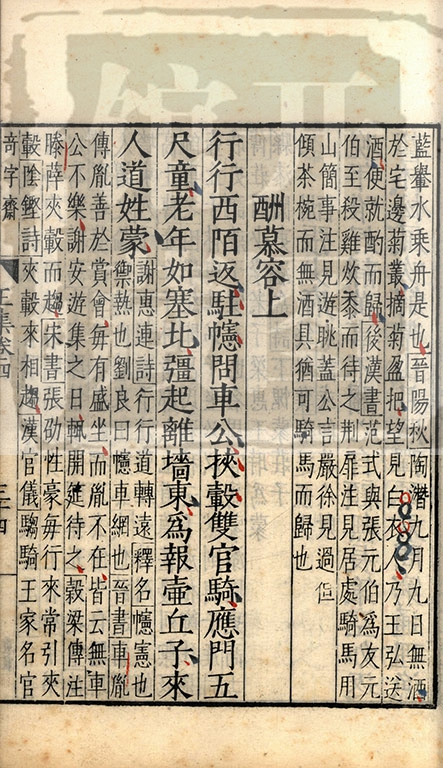 藍轝水乘舟是也晉陽秋陶潛九月九日無酒
於宅邊菊叢摘菊盈把望見白衣人乃王弘送
酒便就酌而歸後漢書范式與張元伯為友元
伯至殺雞炊黍而待之荆扉注見居處騎馬用
山簡事注見遊眺蓋公言嚴徐見過但
傾茶椀而無酒具猶可騎馬而歸也
酬慕容上
行行西陌返駐幰問車公挾轂雙官騎應門五
尺童老年如塞北彊起離墻東為報壺丘子來
人道姓蒙
謝惠連詩行行道轉遠釋名幰憲也
禦熱也劉良曰幰車網也晉書車胤
傳胤善於賞會每有盛坐而胤不在皆云無車
公不樂謝安遊集之日輒開筵待之穀梁傳注
滕薛夾轂而趨宋書張劭性豪每行來常引夾
轂陰鏗詩夾轂來相趨漢官儀騶騎王家名官
奇字齋
王集卷四
三十四